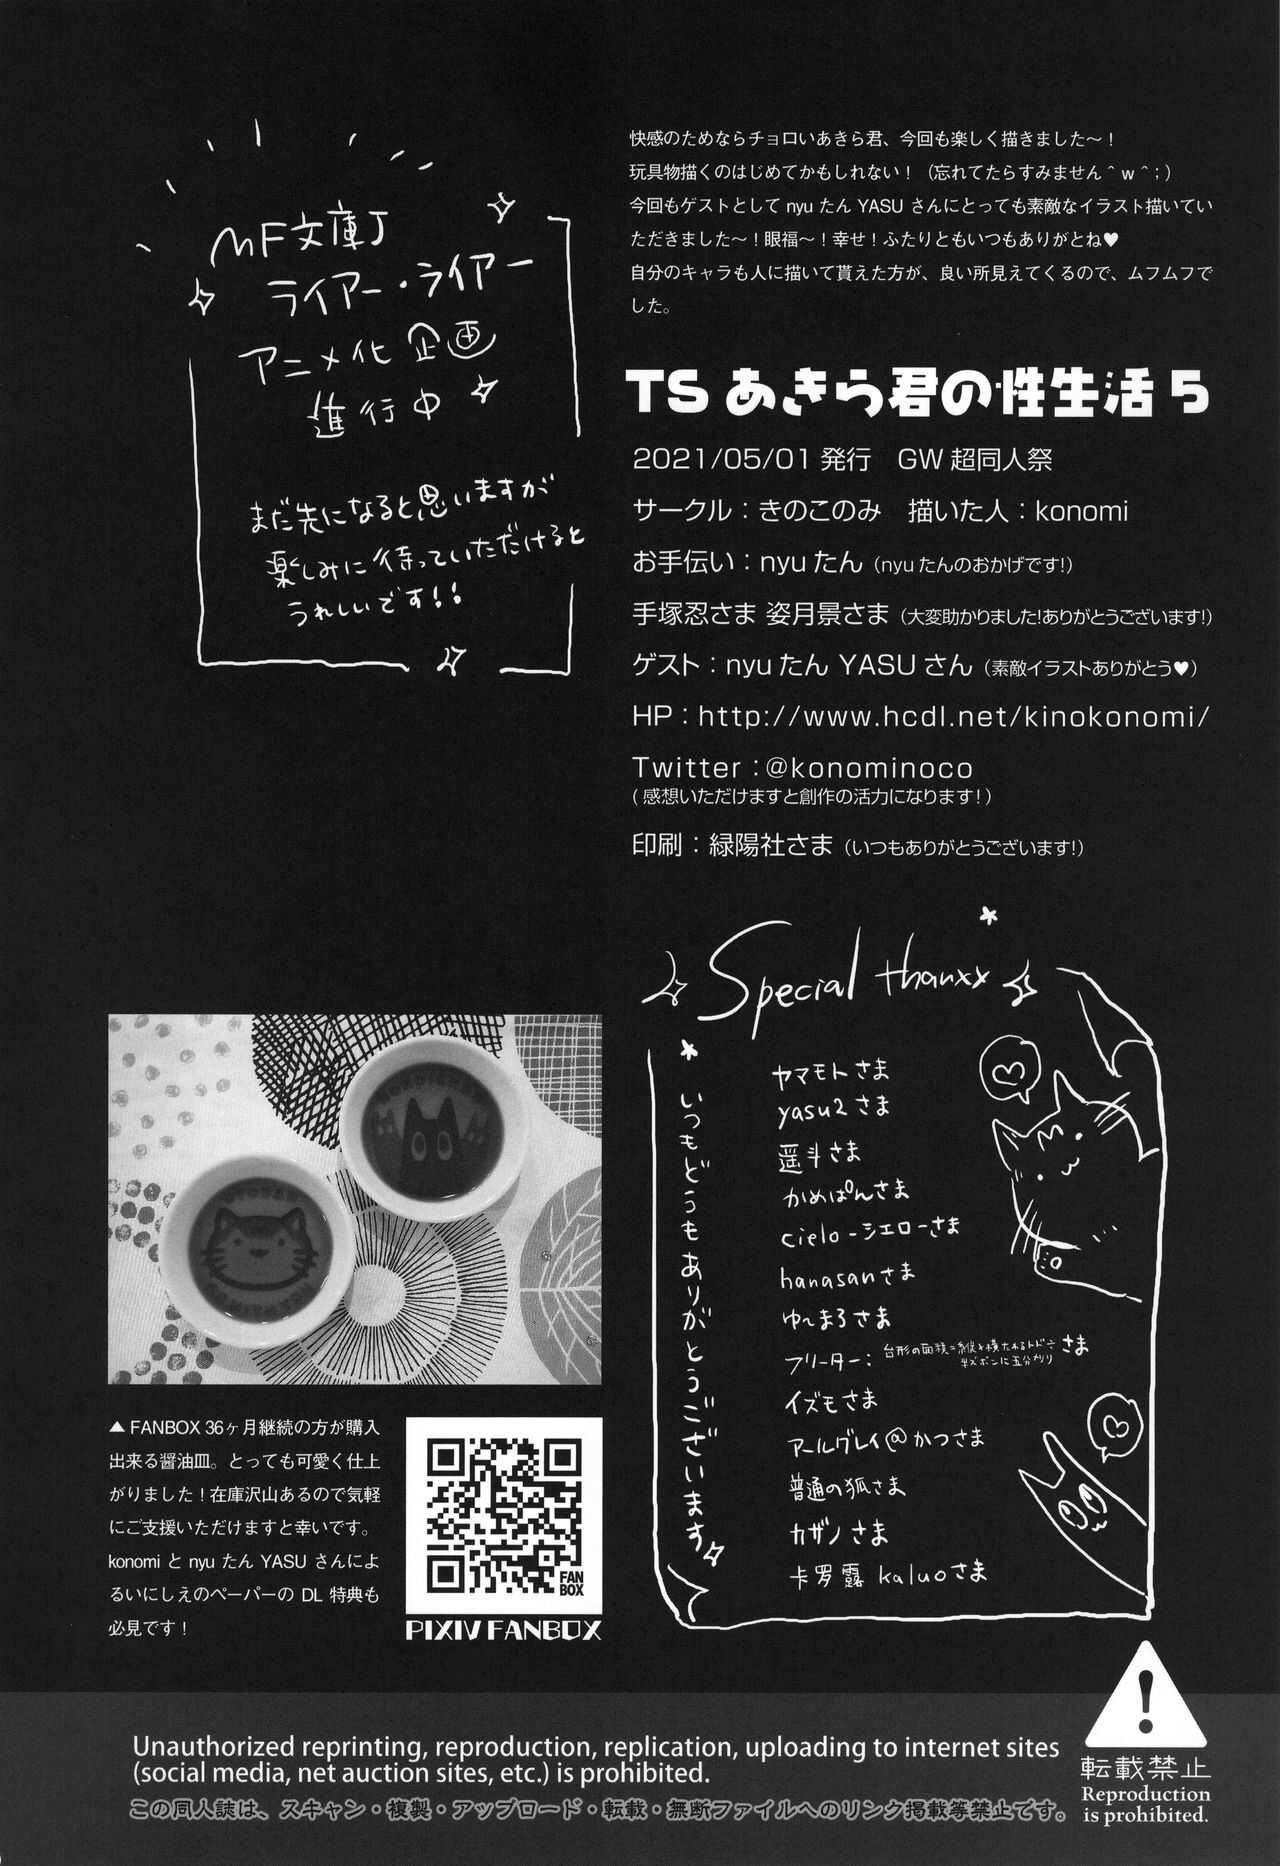 快感のためならチョロいあきら君、今回も楽しく描きました〜！
玩具物描くのはじめてかもしれない！（忘れてたらすみません＾ｗ＾；）
今回もゲストとして nyu たん YASU さんにとっても素敵なイラスト描いてい
ただきました〜！眼福〜！幸せ！ふたりともいつもありがとね♥
自分のキャラも人に描いて貰えた方が、良い所見えてくるので、ムフムフで
した。
MF文庫J
ライアー・ライアー
アニメ化企画
進行中
まだ先になると思いますが
楽しみに待っていただけると
うれしいです！！
TSあきら君の性生活5
2021/05/01 発行　GW 超同人祭
サークル：きのこのみ　描いた人：konomi
お手伝い：nyu たん（nyu たんのおかげです！）
手塚忍さま 姿月景さま（大変助かりました！ありがとうございます！）
ゲスト：nyu たん YASU さん（素敵イラストありがとう♥）
HP：http://www.hcdl.net/kinokonomi/
Twitter：@konominoco
(感想いただけますと創作の活力になります！)
印刷：緑陽社さま（いつもありがとうございます！）
Special thanxx
いつもどうもありがとうございます
ヤマモトさま
yasu2さま
遥斗さま
かめぱんさま
cielo-シエローさま
hanasanさま
ゆ〜まろさま
フリーター：台形の面積=縦と横たわるトド÷
半ズボンに五分がり さま
イズモさま
アールグレイ@かつさま
普通の狐さま
カザノさま
卡罗露 kaluoさま
▲ FANBOX 36ヶ月継続の方が購入
出来る醤油皿。とっても可愛く仕上
がりました！在庫沢山あるので気軽
にご支援いただけますと幸いです。
konomi と nyu たん YASU さんによ
るいにしえのペーパーの DL 特典も
必見です！
FAN
BOX
PIXIV FANBOX
Unauthorized reprinting, reproduction, replication, uploading to internet sites
(social media, net auction sites, etc.) is prohibited.
この同人誌は、スキャン・複製・アップロード・転載・無断ファイルへのリンク掲載等禁止です。
転載禁止
Reproduction
is prohibited.